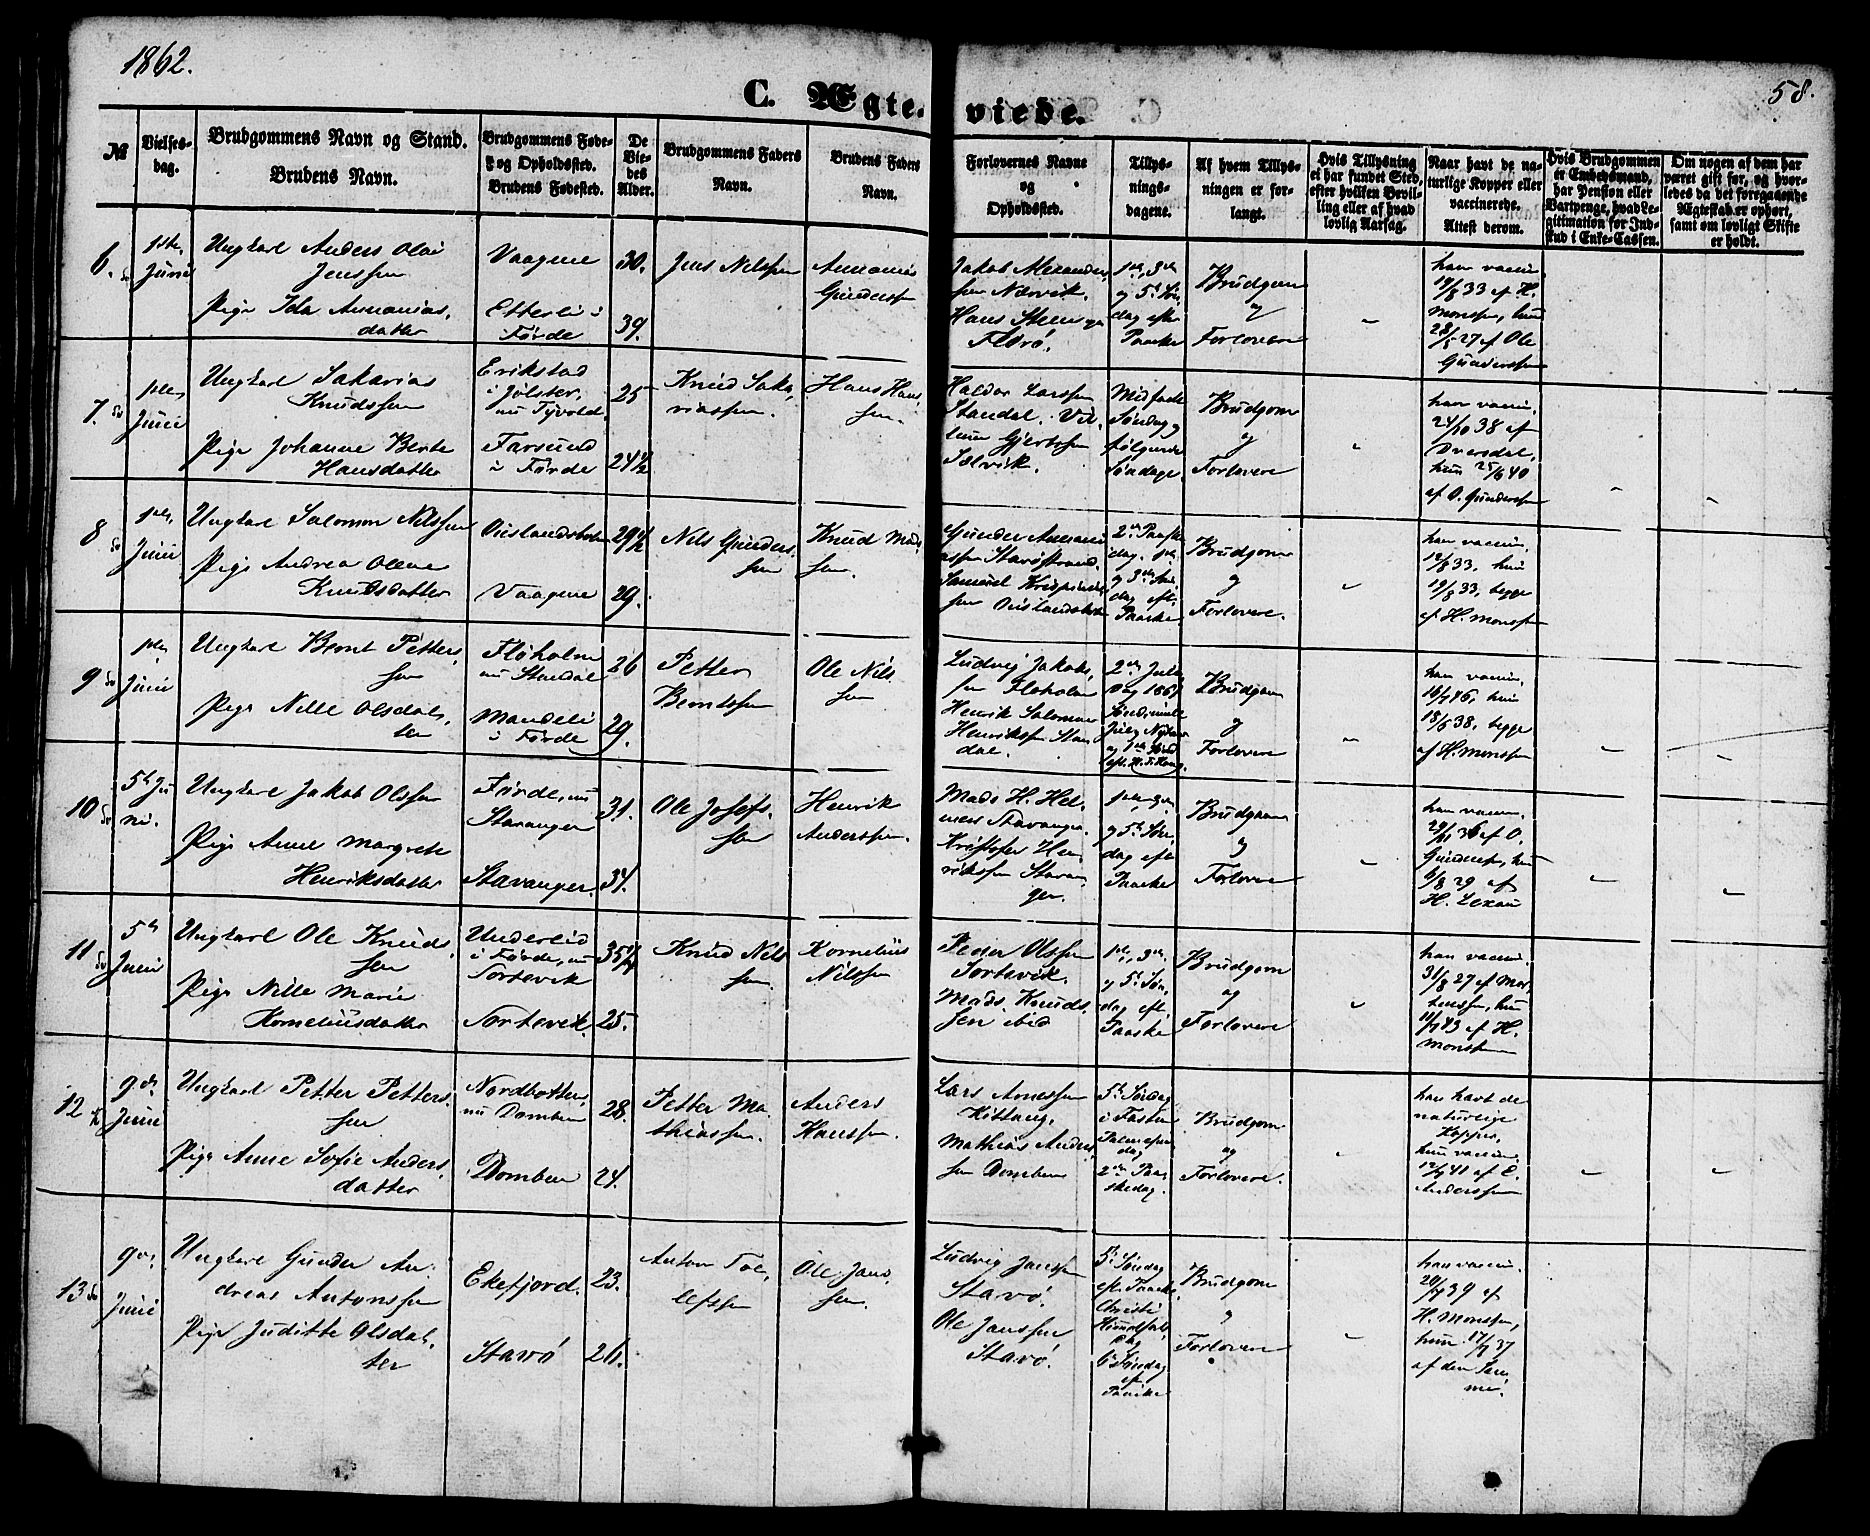 1862.
58.
C. Ægte-
viede.
№
Vielses-
dag.
Brudgommens Navn og Stand.
Brudens Navn.
Brudgommens Føde-
og Opholdssted.
Brudens Fødested.
De
Vie-
des
Alder.
Brudgommens Faders
Navn.
Brudens Faders
Navn.
Forlovernes Navne
og
Opholdssted.
Tillys-
nings-
dagene.
Af hvem Tillys-
ningen er for-
langt.
Hvis Tillysning
ei har fundet Sted,
efter hvilken Bevil-
ling eller af hvad
lovlig Aarsag.
Naar havt de na-
turlige Kopper eller
vaccinerede.
Attest derom.
Hvis Brudgommen
er Embedsmand,
har Pension eller
Vartpenge, hvad Le-
gitimation for Ind-
skud i Enke-Cassen.
Om nogen af dem har
været gift før, og hvor-
ledes da det foregaaende
Ægteskab er ophørt,
samt om lovligt Skifte
er holdt.
6.
1ste
Juni
Ungkarl Anders Olai
Jenssen
Pige Ida Ananias,
datter
Vaagene
Etterlii
Førde
30.
39.
Jens Nilssen
Ananias
Gunderssen
Jakob Alexander,
sen Nærvik.
Hans Steen
Florø.
1ste, 3die
og 5te Søn,
dag efter
Paaske
Brudgom
og
Forlovere
han vaccin.
19/8 33 af H.
Monssen, hun
28/5 27 af Ole
Gunderssen
7.
Juni
Ungkarl Sakarias
Knudssen
Pige Johanne Berte
Hansdatter
Erikstad
i Jølster,
nu Tyvold
Farsund
i Førde
25
24½
Knud Saka,
riassen.
Hans Hans,
sen.
Haldor Larssen
Standal. Vil,
lum Gjertssen
Solvik.
Midfaste
Søndag og
følgende
Søndage.
Brudgom
og
Forlovere
han vaccin.
24/10 38 af
hun 25/9 40
af O. Gunderssen
8
Juni
Ungkarl Salomon Nilssen
Pige Andrea Oline
Knudsdatter
Vaagene
29½
29.
Nils Gunders,
sen
Knud Mads
sen.
Gunder Anani
assen Stavøstrand.
Samuel Krispinus
sen
2den Paaske
dag, 1ste
og 3die Søn,
dag eft.
Paaske
Brudgom
og
Forlovere.
han vaccin.
12/8 33, hun
19/8 33, begge
af H. Monssen
9
Juni
Ungkarl Bernt Petters,
sen
Pige Nille Olsdat,
ter
Floholm
nu Standal
Mandeli
i Førde
26
29.
Petter
Berntssen
Ole Nils
sen
Ludvig Jakobs,
sen Floholm
Henrik Salomon
Henrikssen Stan
dal.
2den Jule
dag 1861
Brudgom
og
Forlovere
han vaccin.
hun
18/6 38, begge
af H. Monssen
10
5te Ju
ni.
Ungkarl Jakob Olssen
Pige Anne Margrete
Henriksdatter
Førde, nu
Stavanger
Stavanger.
31.
34.
Ole Josefs,
sen
Henrik
Anderssen.
Mads H. Hel,
mers Stavanger.
Kristofer Hen
rikssen Stavan
ger.
1ste 3die
og 5te Søn
dag eft.
Paaske
Brudgom
og
Forlovere
han vaccin.
af O.
Gunderss, hun
6/8 29 af
H. Lexau
11
5te
Juni
Ungkarl Ole Knuds,
sen
Pige Nille Marie
Korneliusdatter
Underlid
i Førde, nu
Sortevik
Sortevik.
35¼
25.
Knud Nils
sen.
Kornelius
Nilssen
Peder Olssen
Sortevik.
Mads Knuds,
sen ibid
1ste, 3die
og 5te Søn,
dag eft.
Paaske
Brudgom
og
Forlovere
han vaccin.
31/8 27 af Mor,
tenssen, hun
11/7 43 af H.
Monssen
12
9de
Juni
Ungkarl Petter Petters,
sen
Pige Anne Sofie Anders,
datter
Nordbotten,
nu Domben
Domben
28.
24.
Petter Ma
thiassen.
Anders
Hanssen.
Lars Arnessen
Kittang,
Mathias Anders,
sen Domben
5te Søndag
i Fasten
Palmesøn
dag
2den Paa
skedag.
Brudgom
og
Forlovere.
han havt de
naturlige
Kopper,
hun vaccin.
12/9 41 af E.
Anderssen
13
9de
Juni
Ungkarl Gunder An,
dreas Antonssen
Pige Juditte Olsdat,
ter
Ekefjord.
Stavø
23.
26.
Anton Tol,
lefssen
Ole Jans,
sen.
Ludvig Janssen
Stavø.
Ole Janssen
Stavø.
5te Søndag
eft. Paaske,
Christi
Himmelfarts
Dag
6te Søndag
eft.
Paaske
Brudgom
og
Forlovere
han vaccin.
20/7 39 af
H. Monssen,
hun 17/7 37
af den Sam
me.